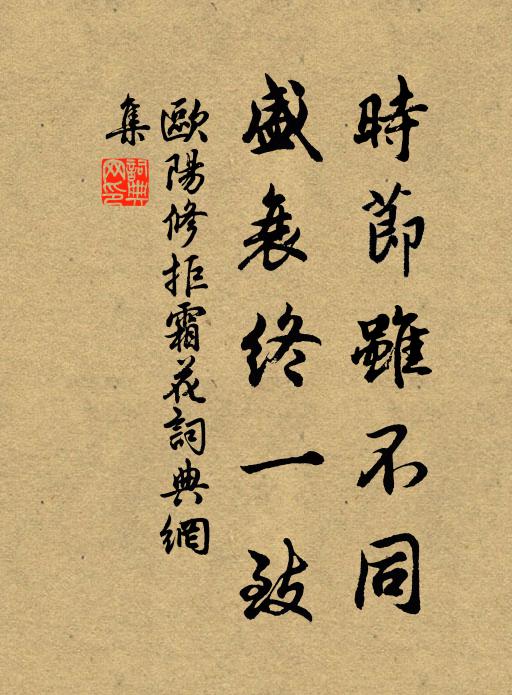 時節雖不同
盛衰終一致
歐陽修拒霜花詞典網
集
詞典
网印